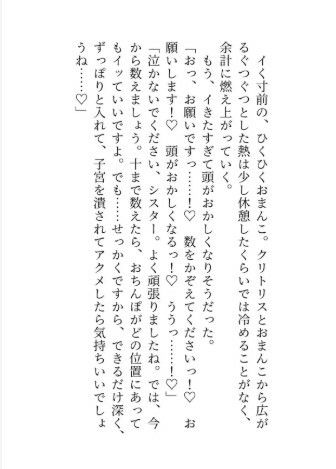 イく寸前の、ひくひくおまんこ。クリトリスとおまんこから広が
るぐつぐつとした熱は少し休憩したくらいでは冷めることがなく、
余計に燃え上がっていく。
　もう、イきたすぎて頭がおかしくなりそうだった。
「おっ、お願いですっ……！♡　数をかぞえてくださいっ！♡　お
願いします！♡　頭がおかしくなるっ！♡　ううっ……！♡」
「泣かないでください、シスター。よく頑張りましたね。では、今
から数えましょう。十まで数えたら、おちんぽがどの位置にあって
もイッていいですよ。でも……せっかくですから、できるだけ深く、
ずっぽりと入れて、子宮を潰されてアクメしたら気持ちいいでしょ
うね……♡」